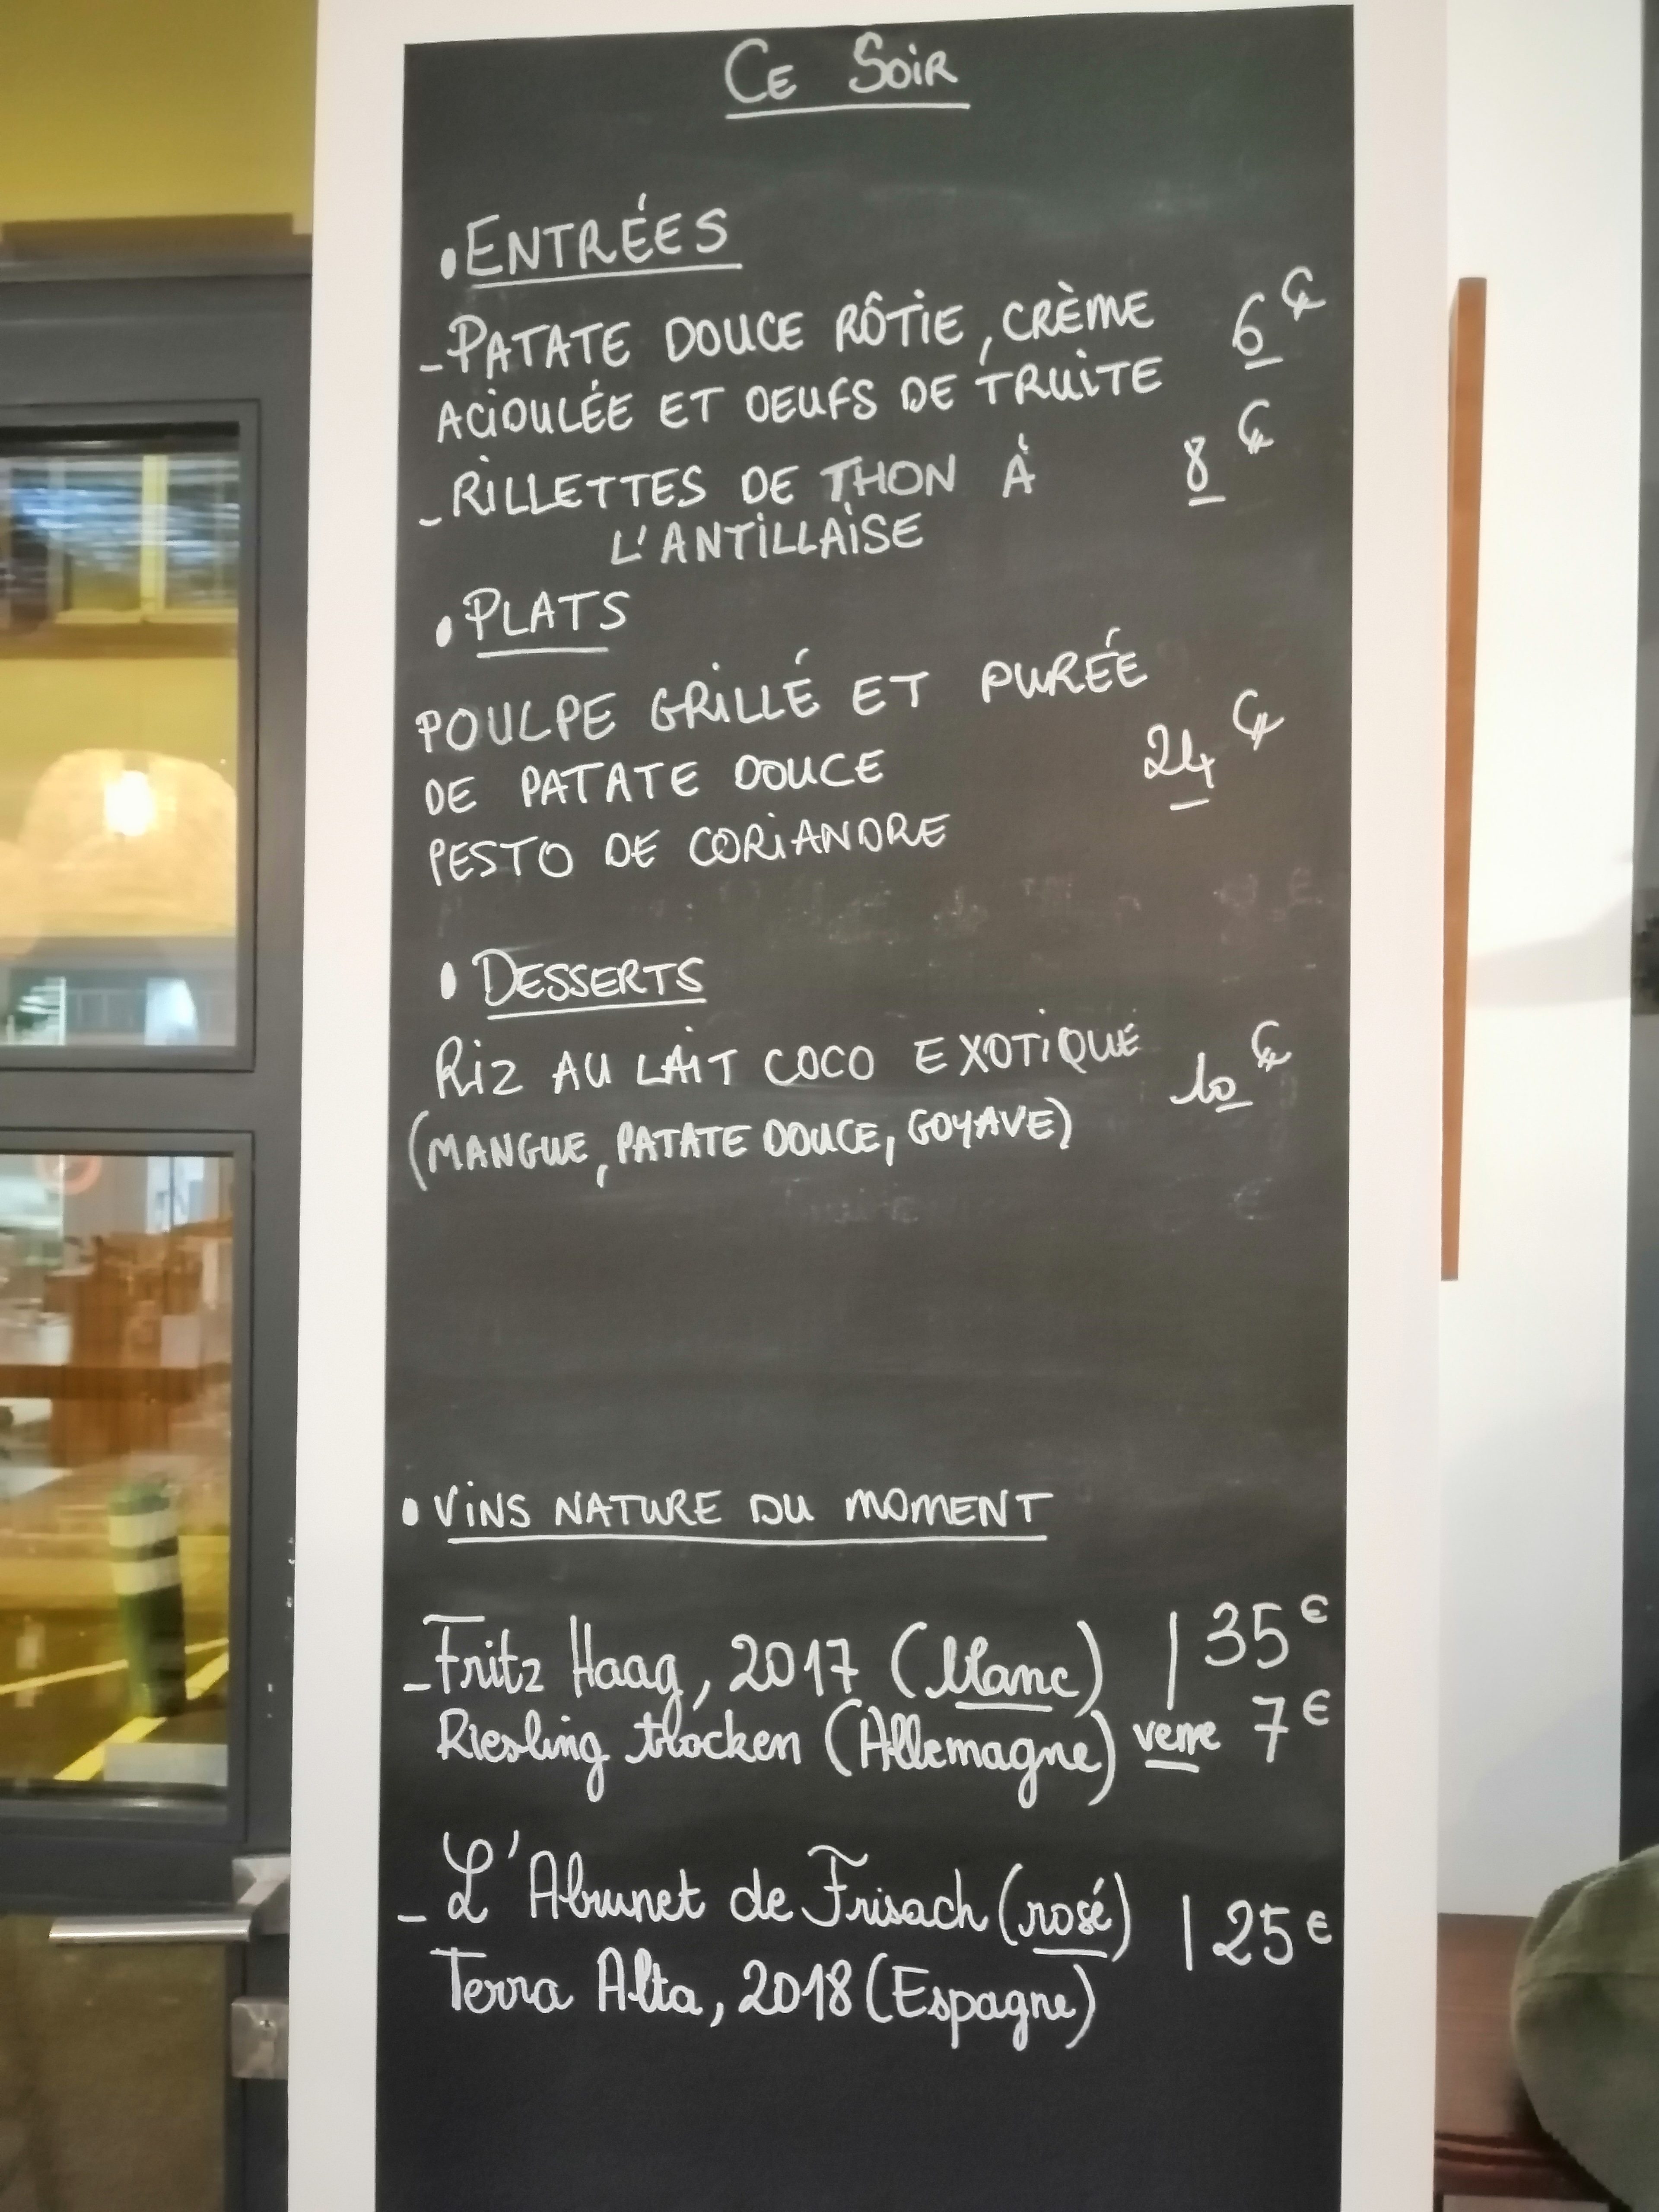 CE SOIR
• ENTRÉES
- PATATE DOUCE RÔTIE, CRÈME 6€
ACIDULÉE ET OEUFS DE TRUITE
- RILLETTES DE THON À 8€
L'ANTILLAISE
• PLATS
POULPE GRILLÉ ET PURÉE
DE PATATE DOUCE 24€
PESTO DE CORIANDRE
• DESSERTS
RIZ AU LAIT COCO EXOTIQUE 10€
(MANGUE, PATATE DOUCE, GOYAVE)
• VINS NATURE DU MOMENT
- Fritz Haag, 2017 (blanc) | 35€
Riesling trocken (Allemagne) verre 7€
- L'Abrunet de Frisach (rosé) | 25€
Terra Alta, 2018 (Espagne)